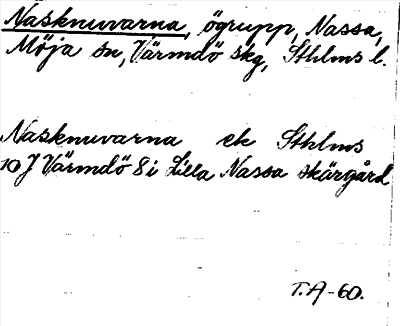 Nasknuvarna, ögrupp, Nassa,
Möja sn, Värmdö skg, Sthlms l.
Nasknuvarna ek Sthlms
10 J Värmdö 8 i Lilla Nassa skärgård
T.A-60.